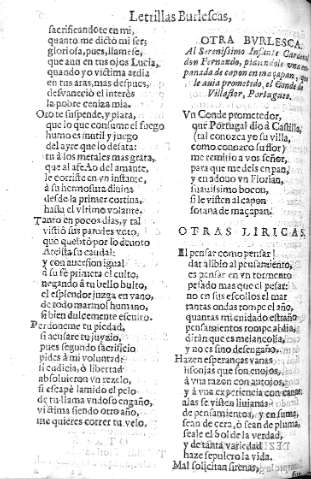 Letrillas Burlescas,
sacrificandote en mi,
quanto me dictò mi ser;
gloriosa, pues, llamese,
que aun en tus ojos Lucia,
quando yo victima ardia
en tus aras, mas despues,
desvaneciò el interès
la pobre ceniza mia.
Oro te suspende, y plata,
que lo que consume el fuego
humo es inutil y juego
del ayre que lo desata:
tu à los metales mas grata,
que al afecto del amante,
le corriste en vn instante,
à su hermosura divina
desde la primer cortina,
hasta el vltimo volante.
Tanto en pocos dias, y tal
vistiò sus paredes
que quebrò por lo devoto
su caudal:
y con aversion igual
à su fè primera el culto,
negando à tu bello bulto,
el esplendor juzga en vano,
de todo marmol humano,
si bien dulcemente esculto.
Perdoneme tu piedad,
si acusare tu juyzio,
pues segundo sacrificio
pides à mi voluntad:
si cudicia, ò libertad
absolvieron vn rezelo,
si escapè lamido el pelo
de tu llama vndoso engaño,
victima siendo otro año,
me quieres correr tu velo.
OTRA BVRLESCA.
Al Serenissimo Infante Cardenal
don Fernando, pidiendole vna em-
panada de capon en maçapan, que
le avia prometido, el Conde de
Villaflor, Portugues.
Vn Conde prometedor,
que Portugal diò à Castilla,
(tal conozca yo su villa,
como conozco su flor)
me remitiò a vos señor,
para que me deis en pan,
y en adovo vn Florian,
suavissimo bocon,
si le visten al capon
sotana de maçapan.
OTRAS LIRICAS.
El pensar como pensar!
dar alibio al pensamiento,
es pensar en vn tormento
pesado mas que el pesar:
no en sus escollos el mar
tantas ondas rompe el año,
quantas mi cuidado estraño
pensamientos rompe al dia,
diràn que es melancolia,
y no es sino desengaño.
Hazen esperanças vanas
lisonjas que son enojos,
à vna razon con antojos,
y à vna experiencia con canas
alas se visten livianas
de pensamientos, y en suma,
sean de cera, ò sean de pluma,
seale el Sol de la verdad,
y de tanta variedad
haze sepulcro la vida.
Mal solicitan sirenas,